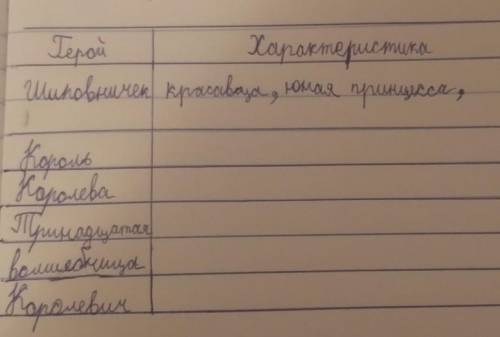 Герой Характеристика
Шиповничек красавица, юная принцесса,
Король
Королева
Тринадцатая
волшебница
Королевич